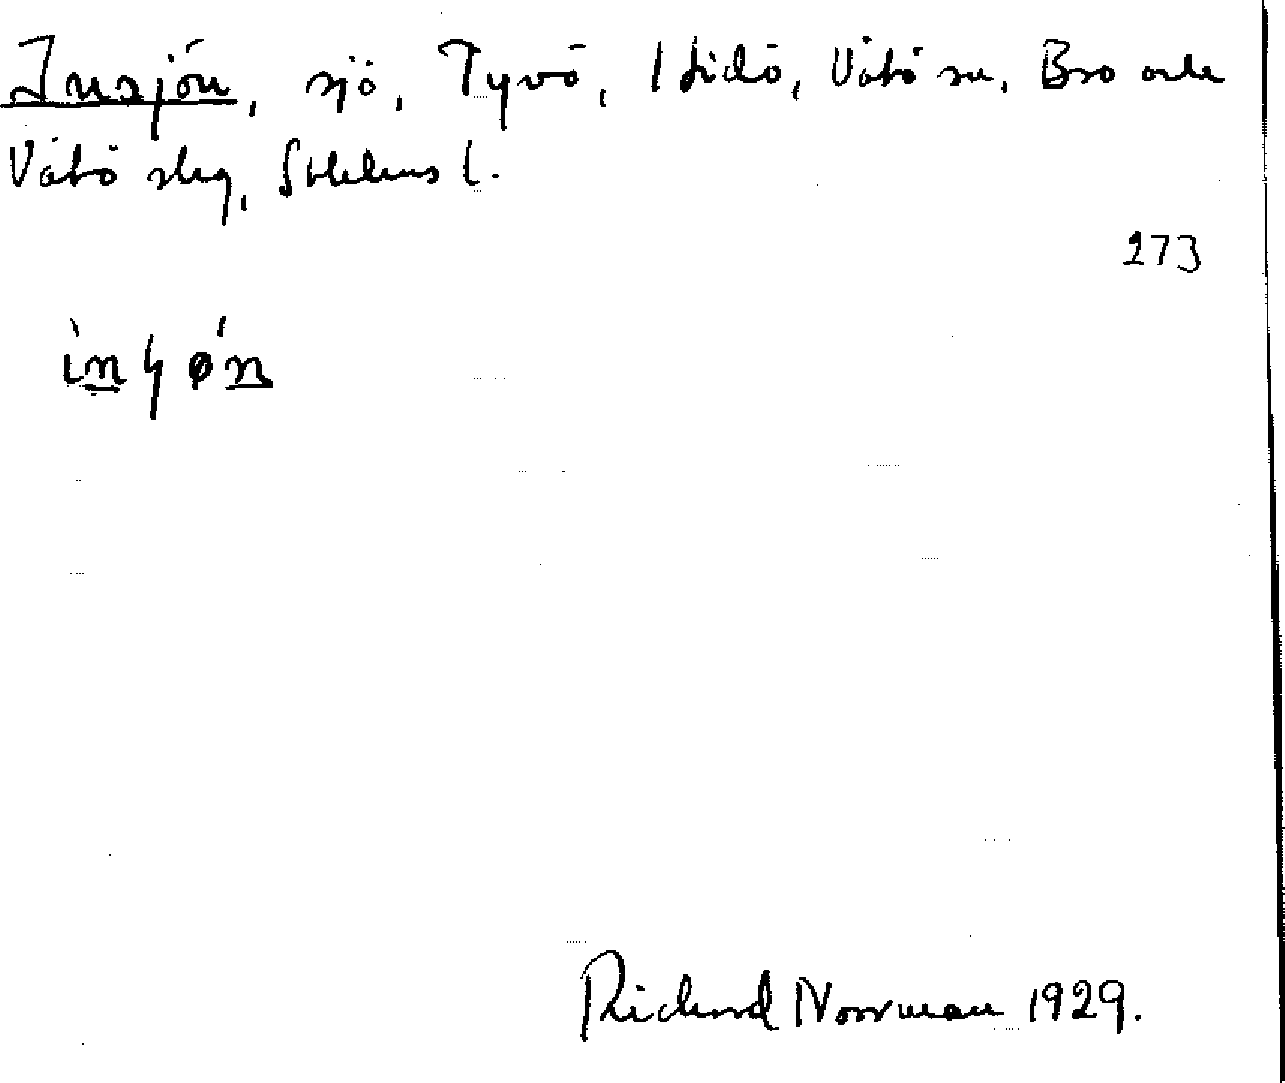 Insjön, sjö, Tyvö, Håtö, Vätö sn, Bro och
Vätö slg, Sthlms l.
273
Richard Norrman 1929.